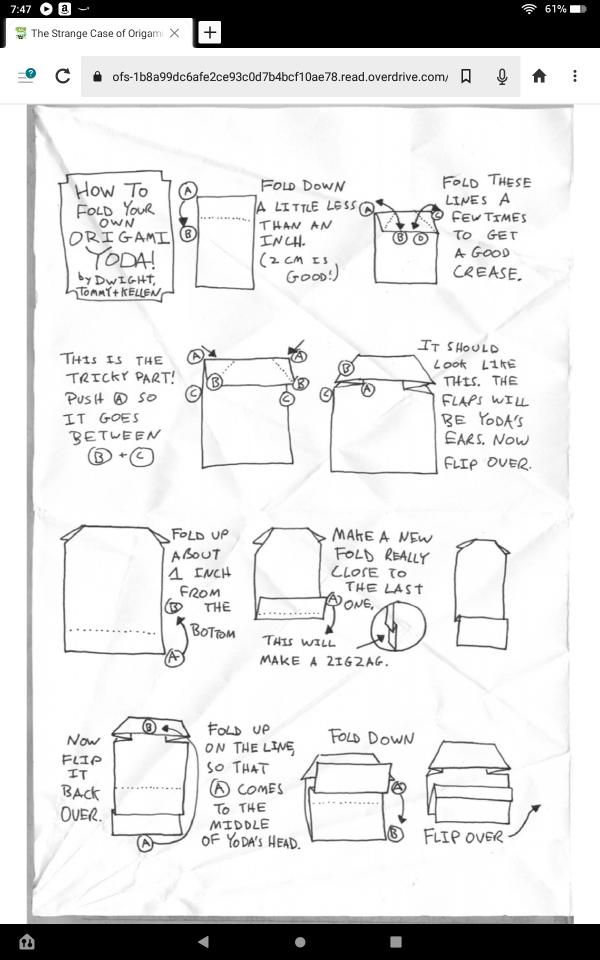 7:47
61%
The Strange Case of Origam
ofs-1b8a99dc6afe2ce93c0d7b4bcf10ae78.read.overdrive.com/
HOW TO
FOLD YOUR
OWN
ORIGAMI
YODA!
by DWIGHT,
TOMMY+KELLEN
A
B
FOLD DOWN
A LITTLE LESS
THAN AN
INCH.
(2 CM IS
GOOD!)
A
C
B D
FOLD THESE
LINES A
FEW TIMES
TO GET
A GOOD
CREASE.
THIS IS THE
TRICKY PART!
PUSH A SO
IT GOES
BETWEEN
B + C
A A
B B
C C
B
A
C
IT SHOULD
LOOK LIKE
THIS. THE
FLAPS WILL
BE YODA'S
EARS. NOW
FLIP OVER.
FOLD UP
ABOUT
1 INCH
FROM
B THE
BOTTOM
A
MAKE A NEW
FOLD REALLY
CLOSE TO
THE LAST
ONE.
A
THIS WILL
MAKE A ZIGZAG.
NOW
FLIP
IT
BACK
OVER.
B
A
FOLD UP
ON THE LINE,
SO THAT
A COMES
TO THE
MIDDLE
OF YODA'S HEAD.
FOLD DOWN
A
B
FLIP OVER